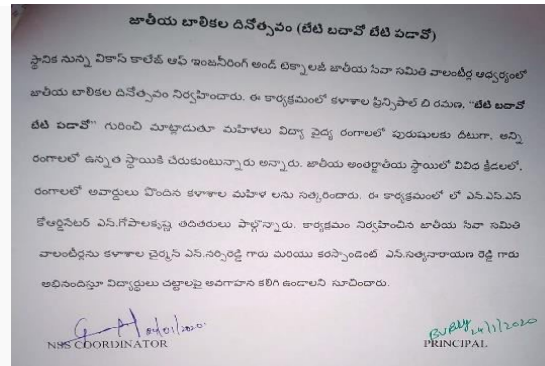 జాతీయ బాలికల దినోత్సవం (బేటి బచావో బేటి పడావో)
స్థానిక నున్న వికాస్ కాలేజ్ ఆప్ ఇంజనీరింగ్ అండ్ టెక్నాలజీ జాతీయ సేవా సమితి వాలంటీర్ల ఆధ్వర్యంలో
జాతీయ బాలికల దినోత్సవం నిర్వహించారు. ఈ కార్యక్రమంలో కళాశాల ప్రిన్సిపాల్ బి రమణ, "బేటి బచావో
బేటి పడావో" గురించి మాట్లాడుతూ మహిళలు విద్యా వైద్య రంగాలలో పురుషులకు దీటుగా, అన్ని
రంగాలలో ఉన్నత స్థాయికి చేరుకుంటున్నారు అన్నారు. జాతీయ అంతర్జాతీయ స్థాయిలో వివిధ క్రీడలలో,
రంగాలలో అవార్డులు పొందిన కళాశాల మహిళ లను సత్కరించారు. ఈ కార్యక్రమంలో లో ఎన్.ఎస్.ఎస్
కోఆర్డినేటర్ ఎన్.గోపాలకృష్ణ తదితరులు పాల్గొన్నారు. కార్యక్రమం నిర్వహించిన జాతీయ సేవా సమితి
వాలంటీర్లను కళాశాల చైర్మన్ ఎన్.నర్సిరెడ్డి గారు మరియు కరస్పాండెంట్ ఎన్.సత్యనారాయణ రెడ్డి గారు
అభినందిస్తూ విద్యార్థులు చట్టాలపై అవగాహన కలిగి ఉండాలని సూచించారు.
24/1/2020
NSS COORDINATOR
PRINCIPAL